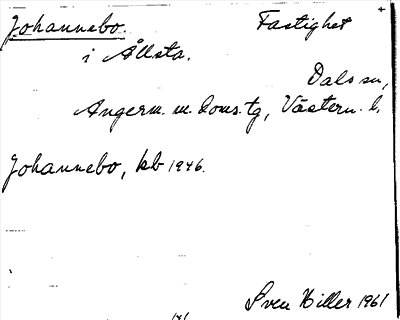 Johannebo. Fastighet
i Ållsta.
Dals sn,
Ångerm. m. doms.tg, Västern. l.
Johannebo, kb 1946.
Sven Hiller 1961